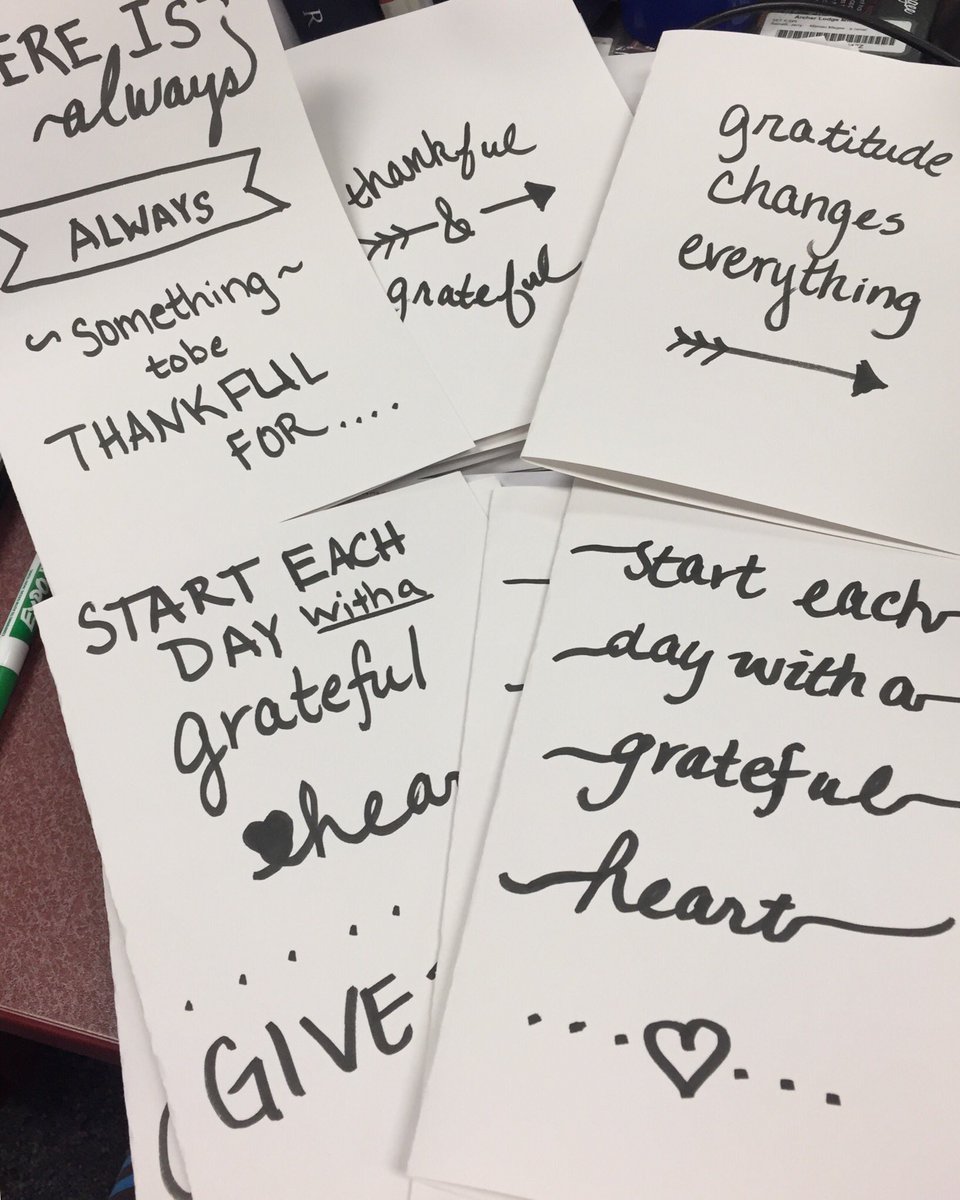 ERE IS
~always
ALWAYS
~something~
tobe
THANKFUL
FOR....
thankful
&
grateful
gratitude
changes
everything
START EACH
DAY with a
grateful
hear
GIVE
start each
day with a
grateful
heart
EXPO
R
Archer Lodge